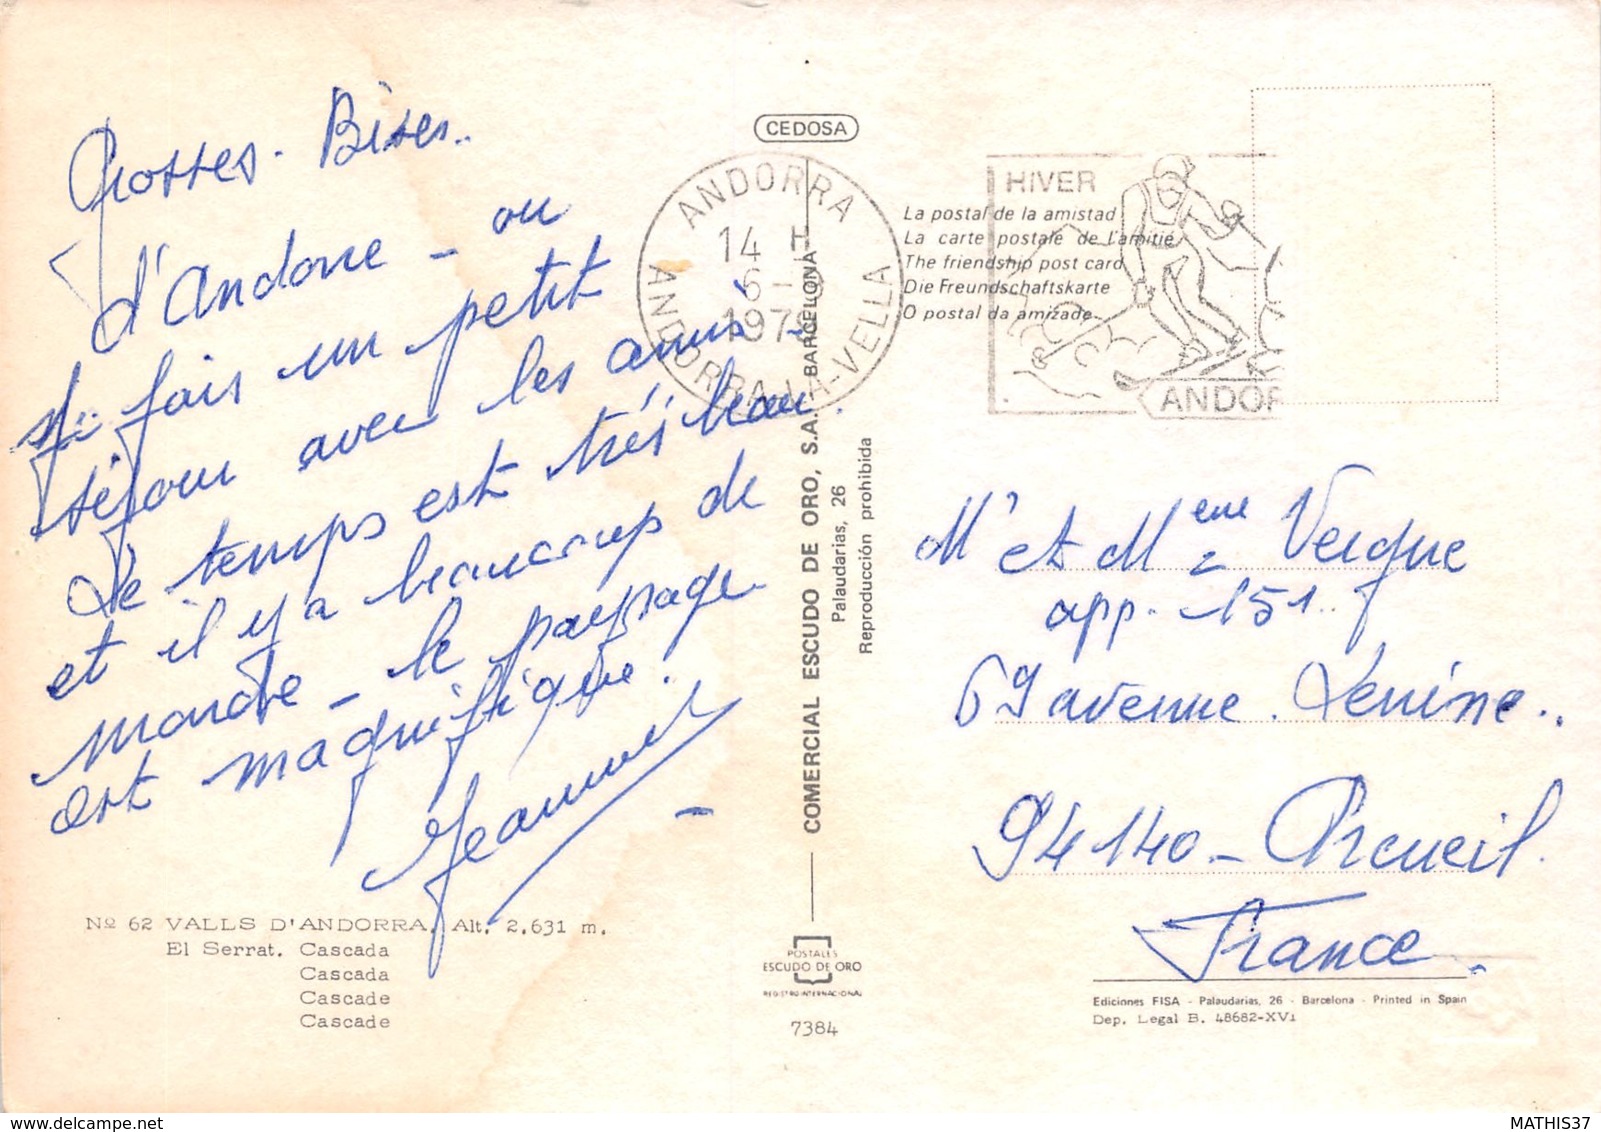 Grosses - Bises..
d'Andorre - ou
je fais un petit
séjour avec les amis -
Le temps est très beau.
et il y a beaucoup de
monde - le paysage
est magnifique.
Jeannot
Nº 62 VALLS D'ANDORRA. Alt. 2.631 m.
El Serrat. Cascada
Cascada
Cascade
Cascade
CEDOSA
ANDORRA
14 H
6 -
ANDORRA-LA-VELLA
COMERCIAL ESCUDO DE ORO, S.A. BARCELONA
Palaudarias, 26
Reproducción prohibida
POSTALES
ESCUDO DE ORO
REGISTRO INTERNACIONAL
7384
HIVER
La postal de la amistad
La carte postale de l'amitié
The friendship post card
Die Freundschaftskarte
O postal da amizade
ANDOR
Mr et Mme Vergue
app. 151.
69 avenue. Lenine..
94140 - Arcueil.
France.
Ediciones FISA - Palaudarias, 26 - Barcelona - Printed in Spain
Dep. Legal B. 48682-XVI
MATHIS37